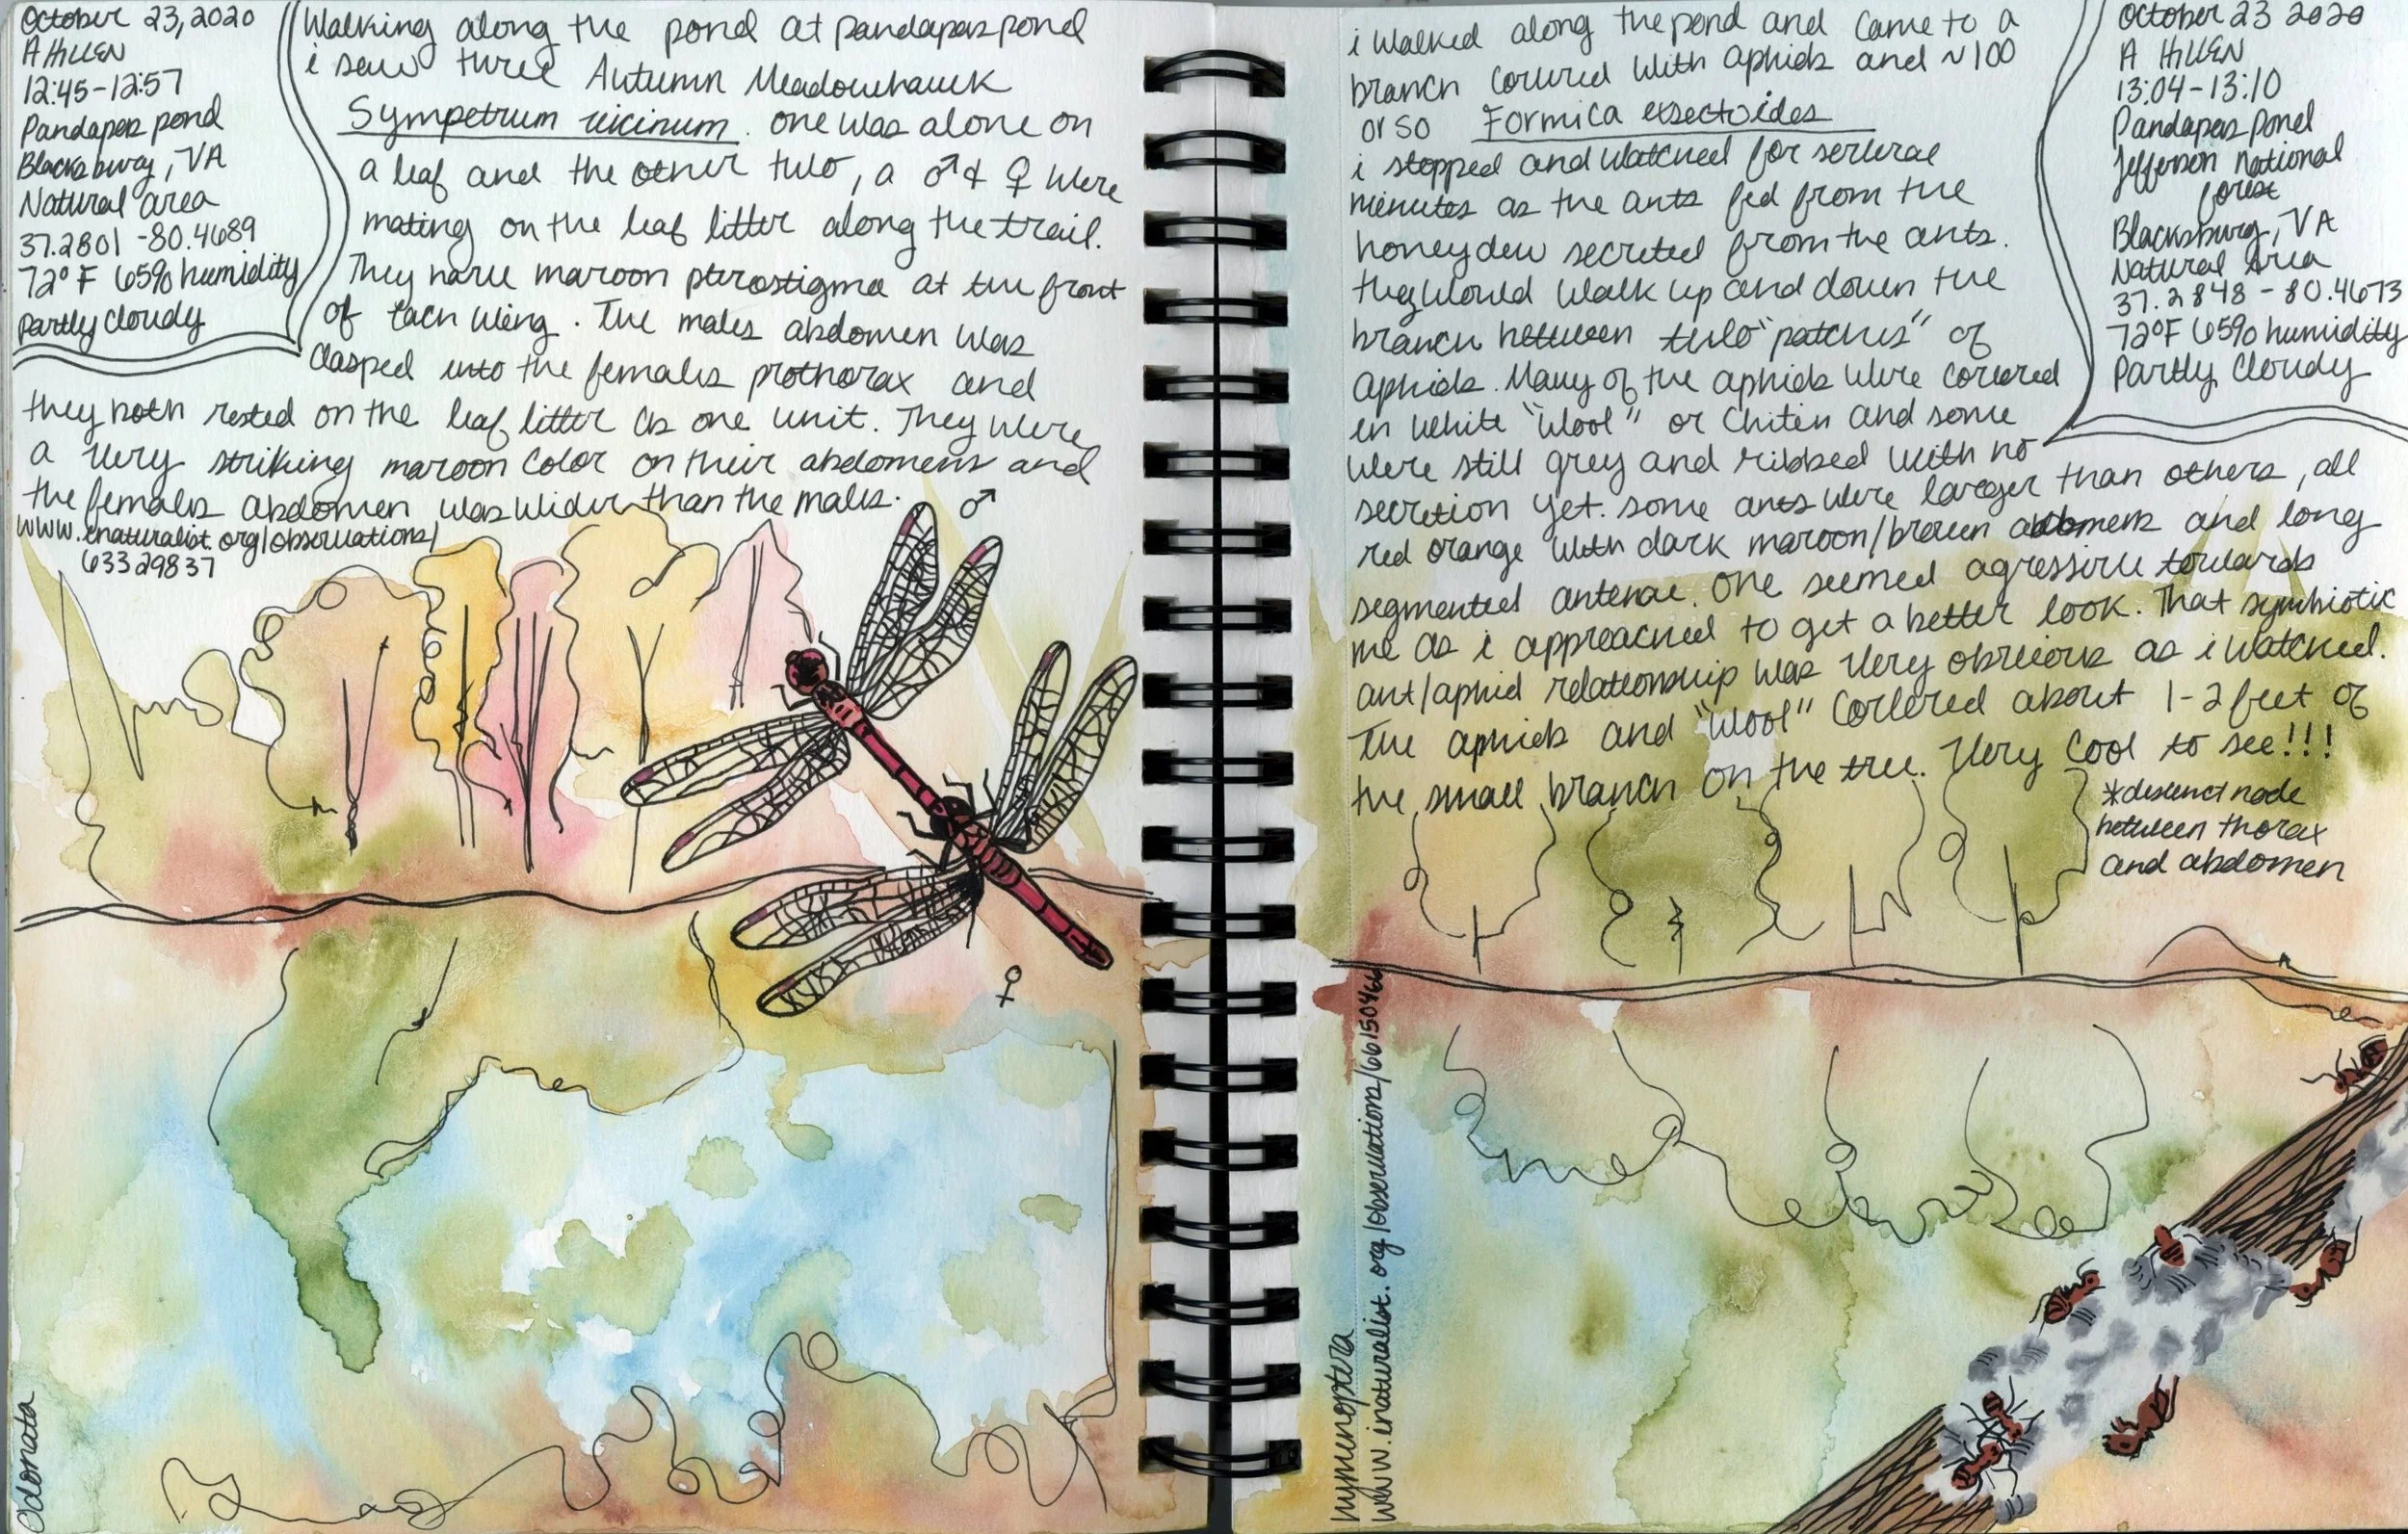 October 23, 2020
A HILLEN
12:45-12:57
Pandapas pond
Blacksburg, VA
Natural area
37.2801 -80.4689
72°F 65% humidity
partly cloudy
Walking along the pond at pandapas pond
i saw three Autumn Meadowhawk
Sympetrum vicinum. one was alone on
a leaf and the other two, a ♂ & ♀ were
mating on the leaf litter along the trail.
They have maroon pterostigma at the front
of each wing. The males abdomen was
clasped into the females prothorax and
they both rested on the leaf litter as one unit. They were
a very striking maroon color on their abdomens and
the females abdomen was wider than the males.
www.inaturalist.org/observations/
63329837
♂
♀
Odonata
i walked along the pond and came to a
branch covered with aphids and ~100
or so Formica exsectoides
i stopped and watched for several
minutes as the ants fed from the
honeydew secreted from the ants.
they would walk up and down the
branch between two "patches" of
aphids. Many of the aphids were covered
in white "wool" or chitin and some
were still grey and ribbed with no
secretion yet. some ants were larger than others, all
red orange with dark maroon/brown abdomens and long
segmented antenae. One seemed agressive towards
me as i appreached to get a better look. That symbiotic
ant/aphid relationship was very obvious as i watched.
The aphids and "wool" covered about 1-2 feet of
the small branch on the tree. Very cool to see!!!
October 23 2020
A HILLEN
13:04-13:10
Pandapas Pond
Jefferson National
forest
Blacksburg, VA
Natural Area
37.2848 -80.4673
72°F 65% humidity
Partly Cloudy
*distinct node
between thorax
and abdomen
Hymenoptera
www.inaturalist.org/observations/66150466